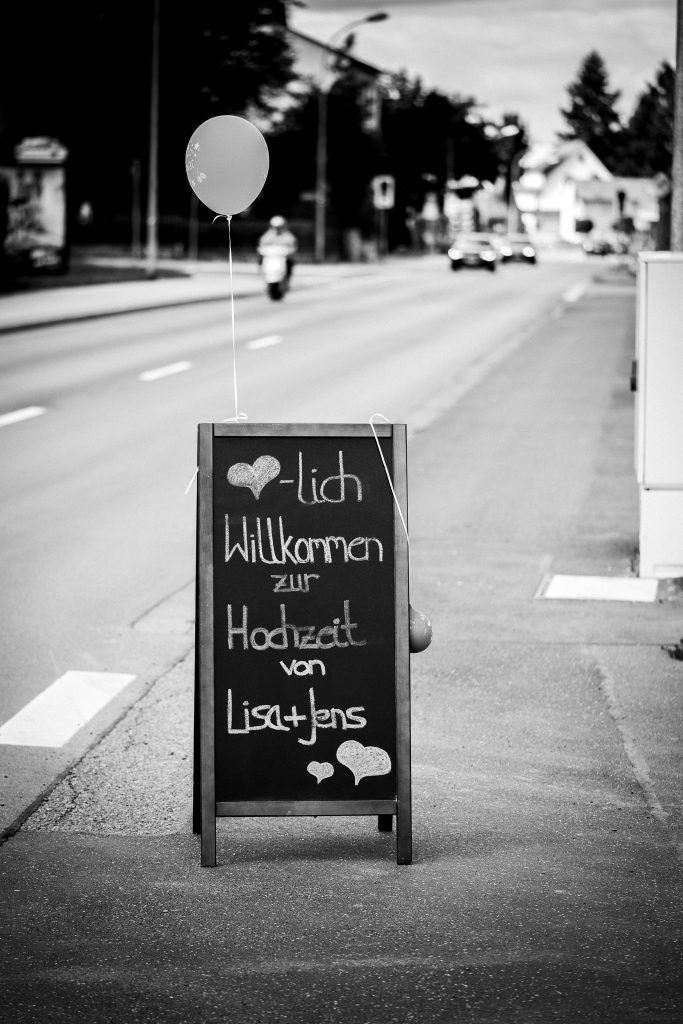 ♥-lich
Willkommen
zur
Hochzeit
von
Lisa+Jens